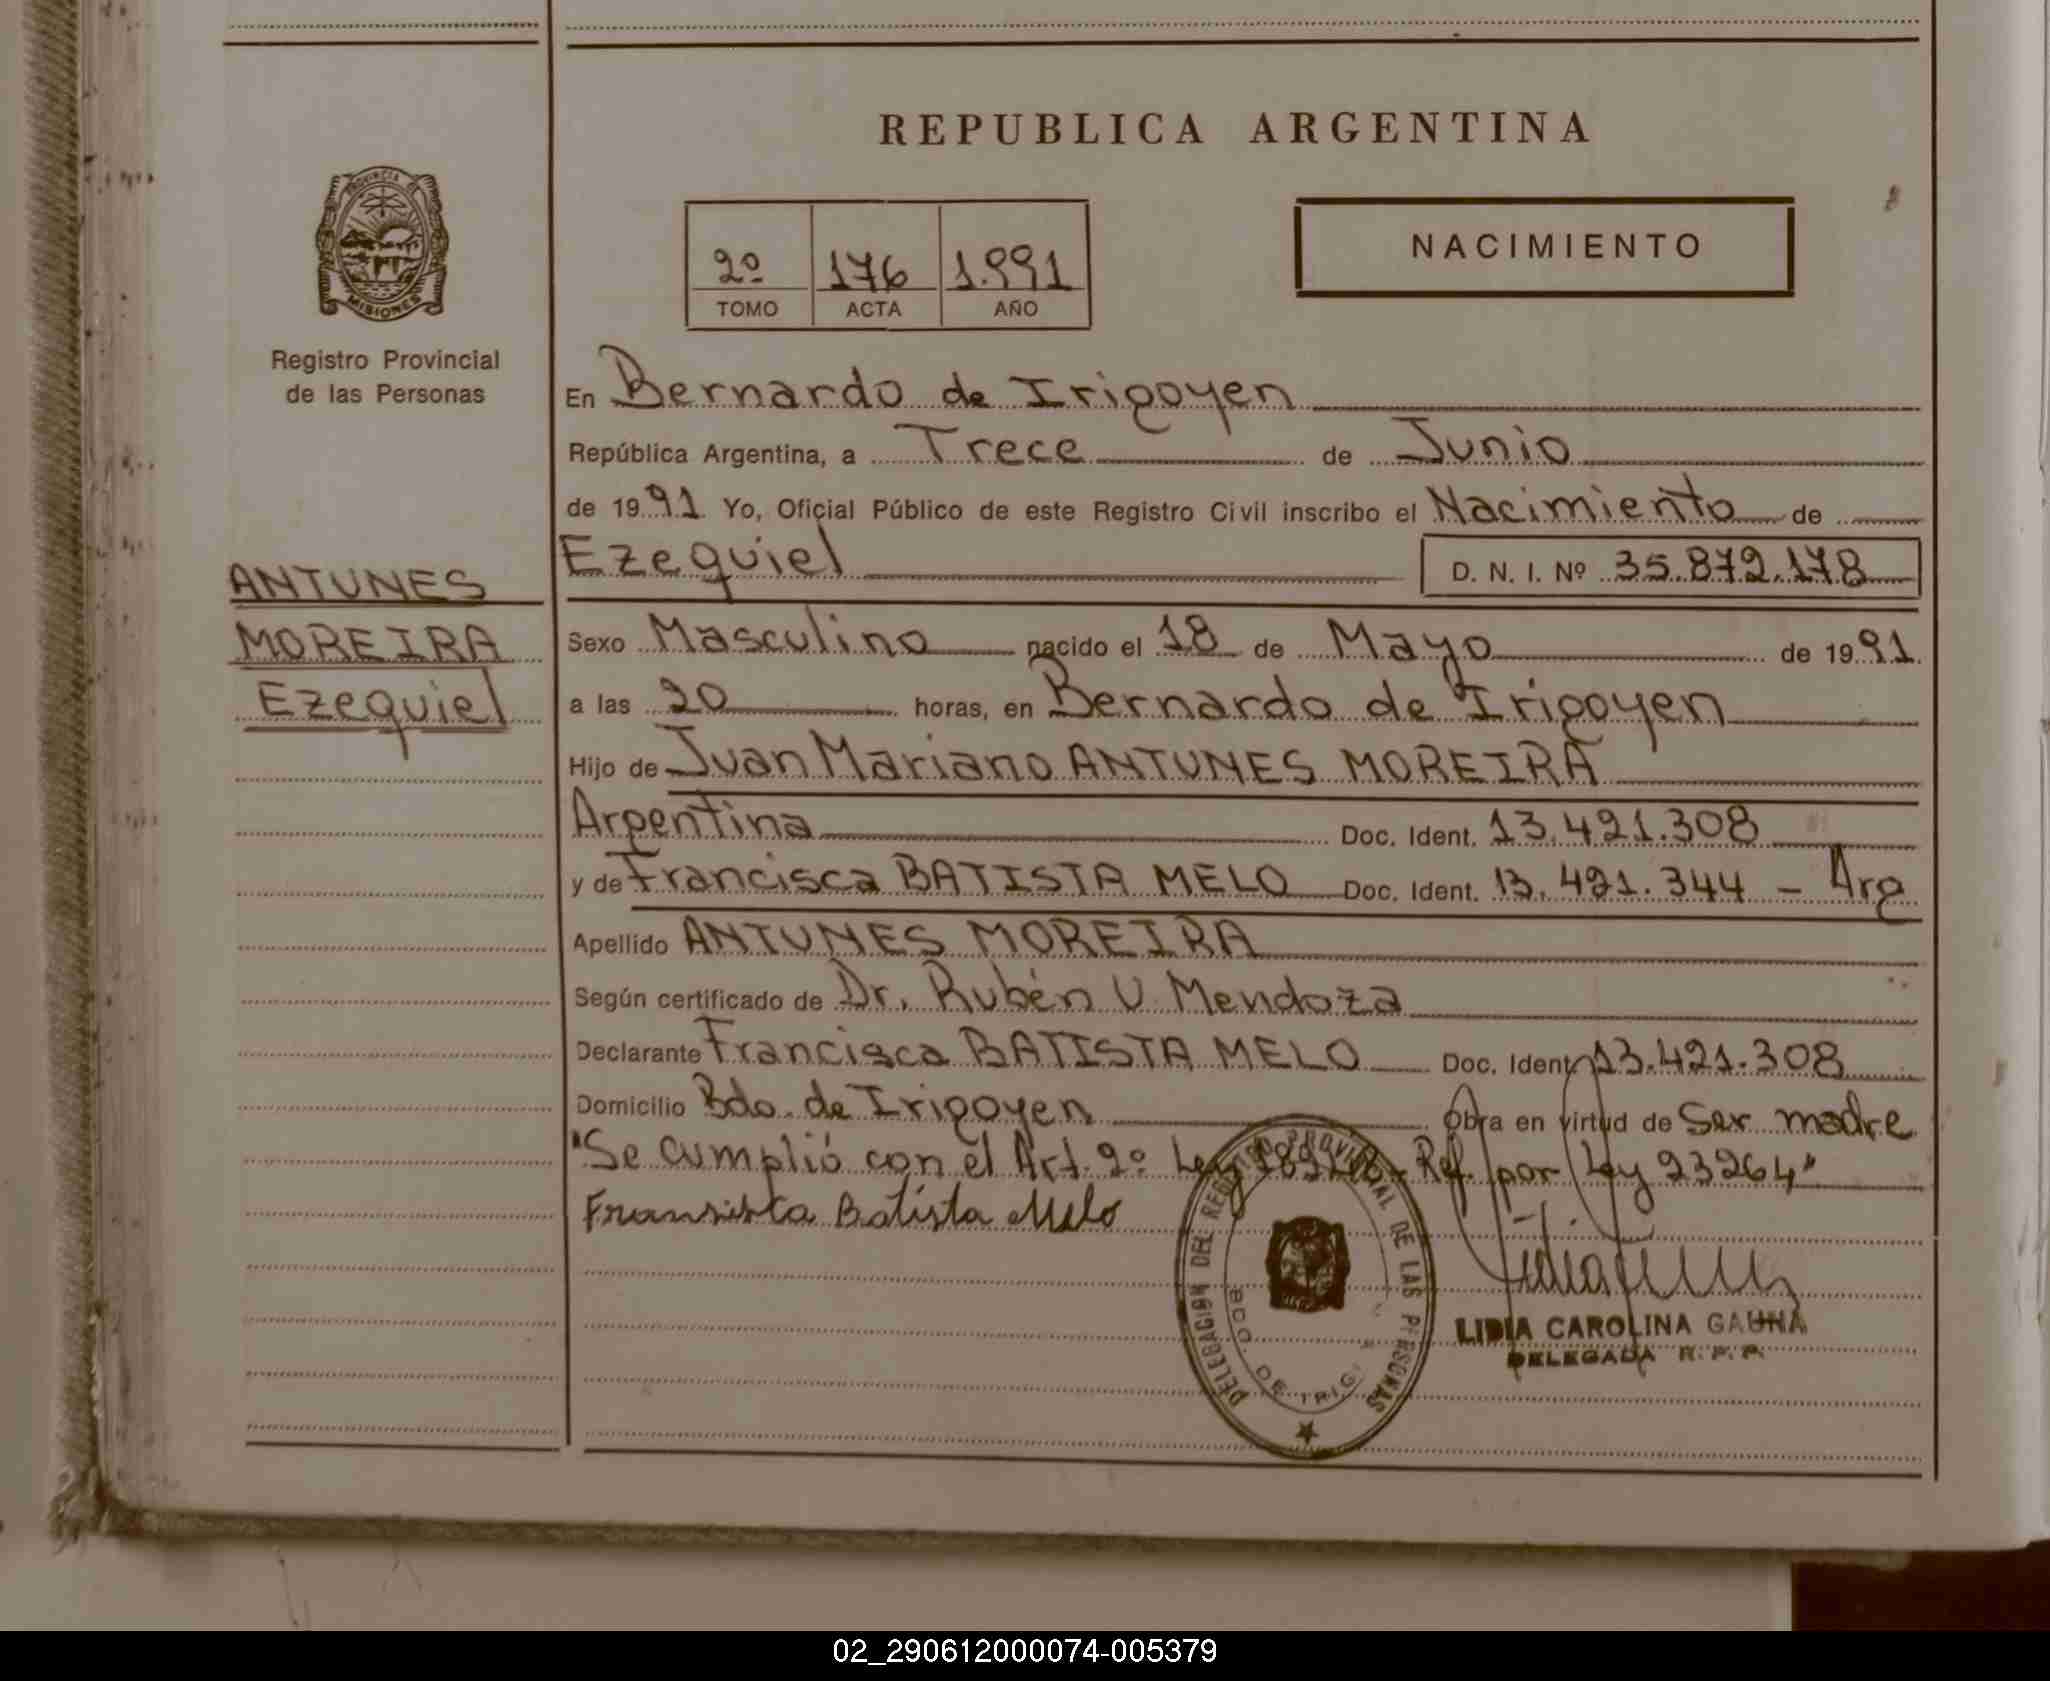 REPUBLICA ARGENTINA
PROVINCIA DE
MISIONES
Registro Provincial
de las Personas
2º 176 1.991
TOMO ACTA AÑO
NACIMIENTO
En Bernardo de Irigoyen
República Argentina, a Trece de Junio
de 1991 Yo, Oficial Público de este Registro Civil inscribo el Nacimiento de
Ezequiel D. N. I. Nº 35.872.178
ANTUNES
MOREIRA
Ezequiel
Sexo Masculino nacido el 18 de Mayo de 1991
a las 20 horas, en Bernardo de Irigoyen
Hijo de Juan Mariano ANTUNES MOREIRA
Argentina Doc. Ident. 13.421.308
y de Francisca BATISTA MELO Doc. Ident. 13.421.344 - Arg
Apellido ANTUNES MOREIRA
Según certificado de Dr. Rubén V. Mendoza
Declarante Francisca BATISTA MELO Doc. Ident. 13.421.308
Domicilio Bdo. de Irigoyen Obra en virtud de Ser madre
"Se cumplió con el Art. 2º Ley Ref. por Ley 23264"
Fransisca Batista Melo
DELEGACION DEL REGISTRO PROVINCIAL DE LAS PERSONAS
BDO. DE IRIG
LIDIA CAROLINA GAUNA
DELEGADA R. P. P.
02_290612000074-005379